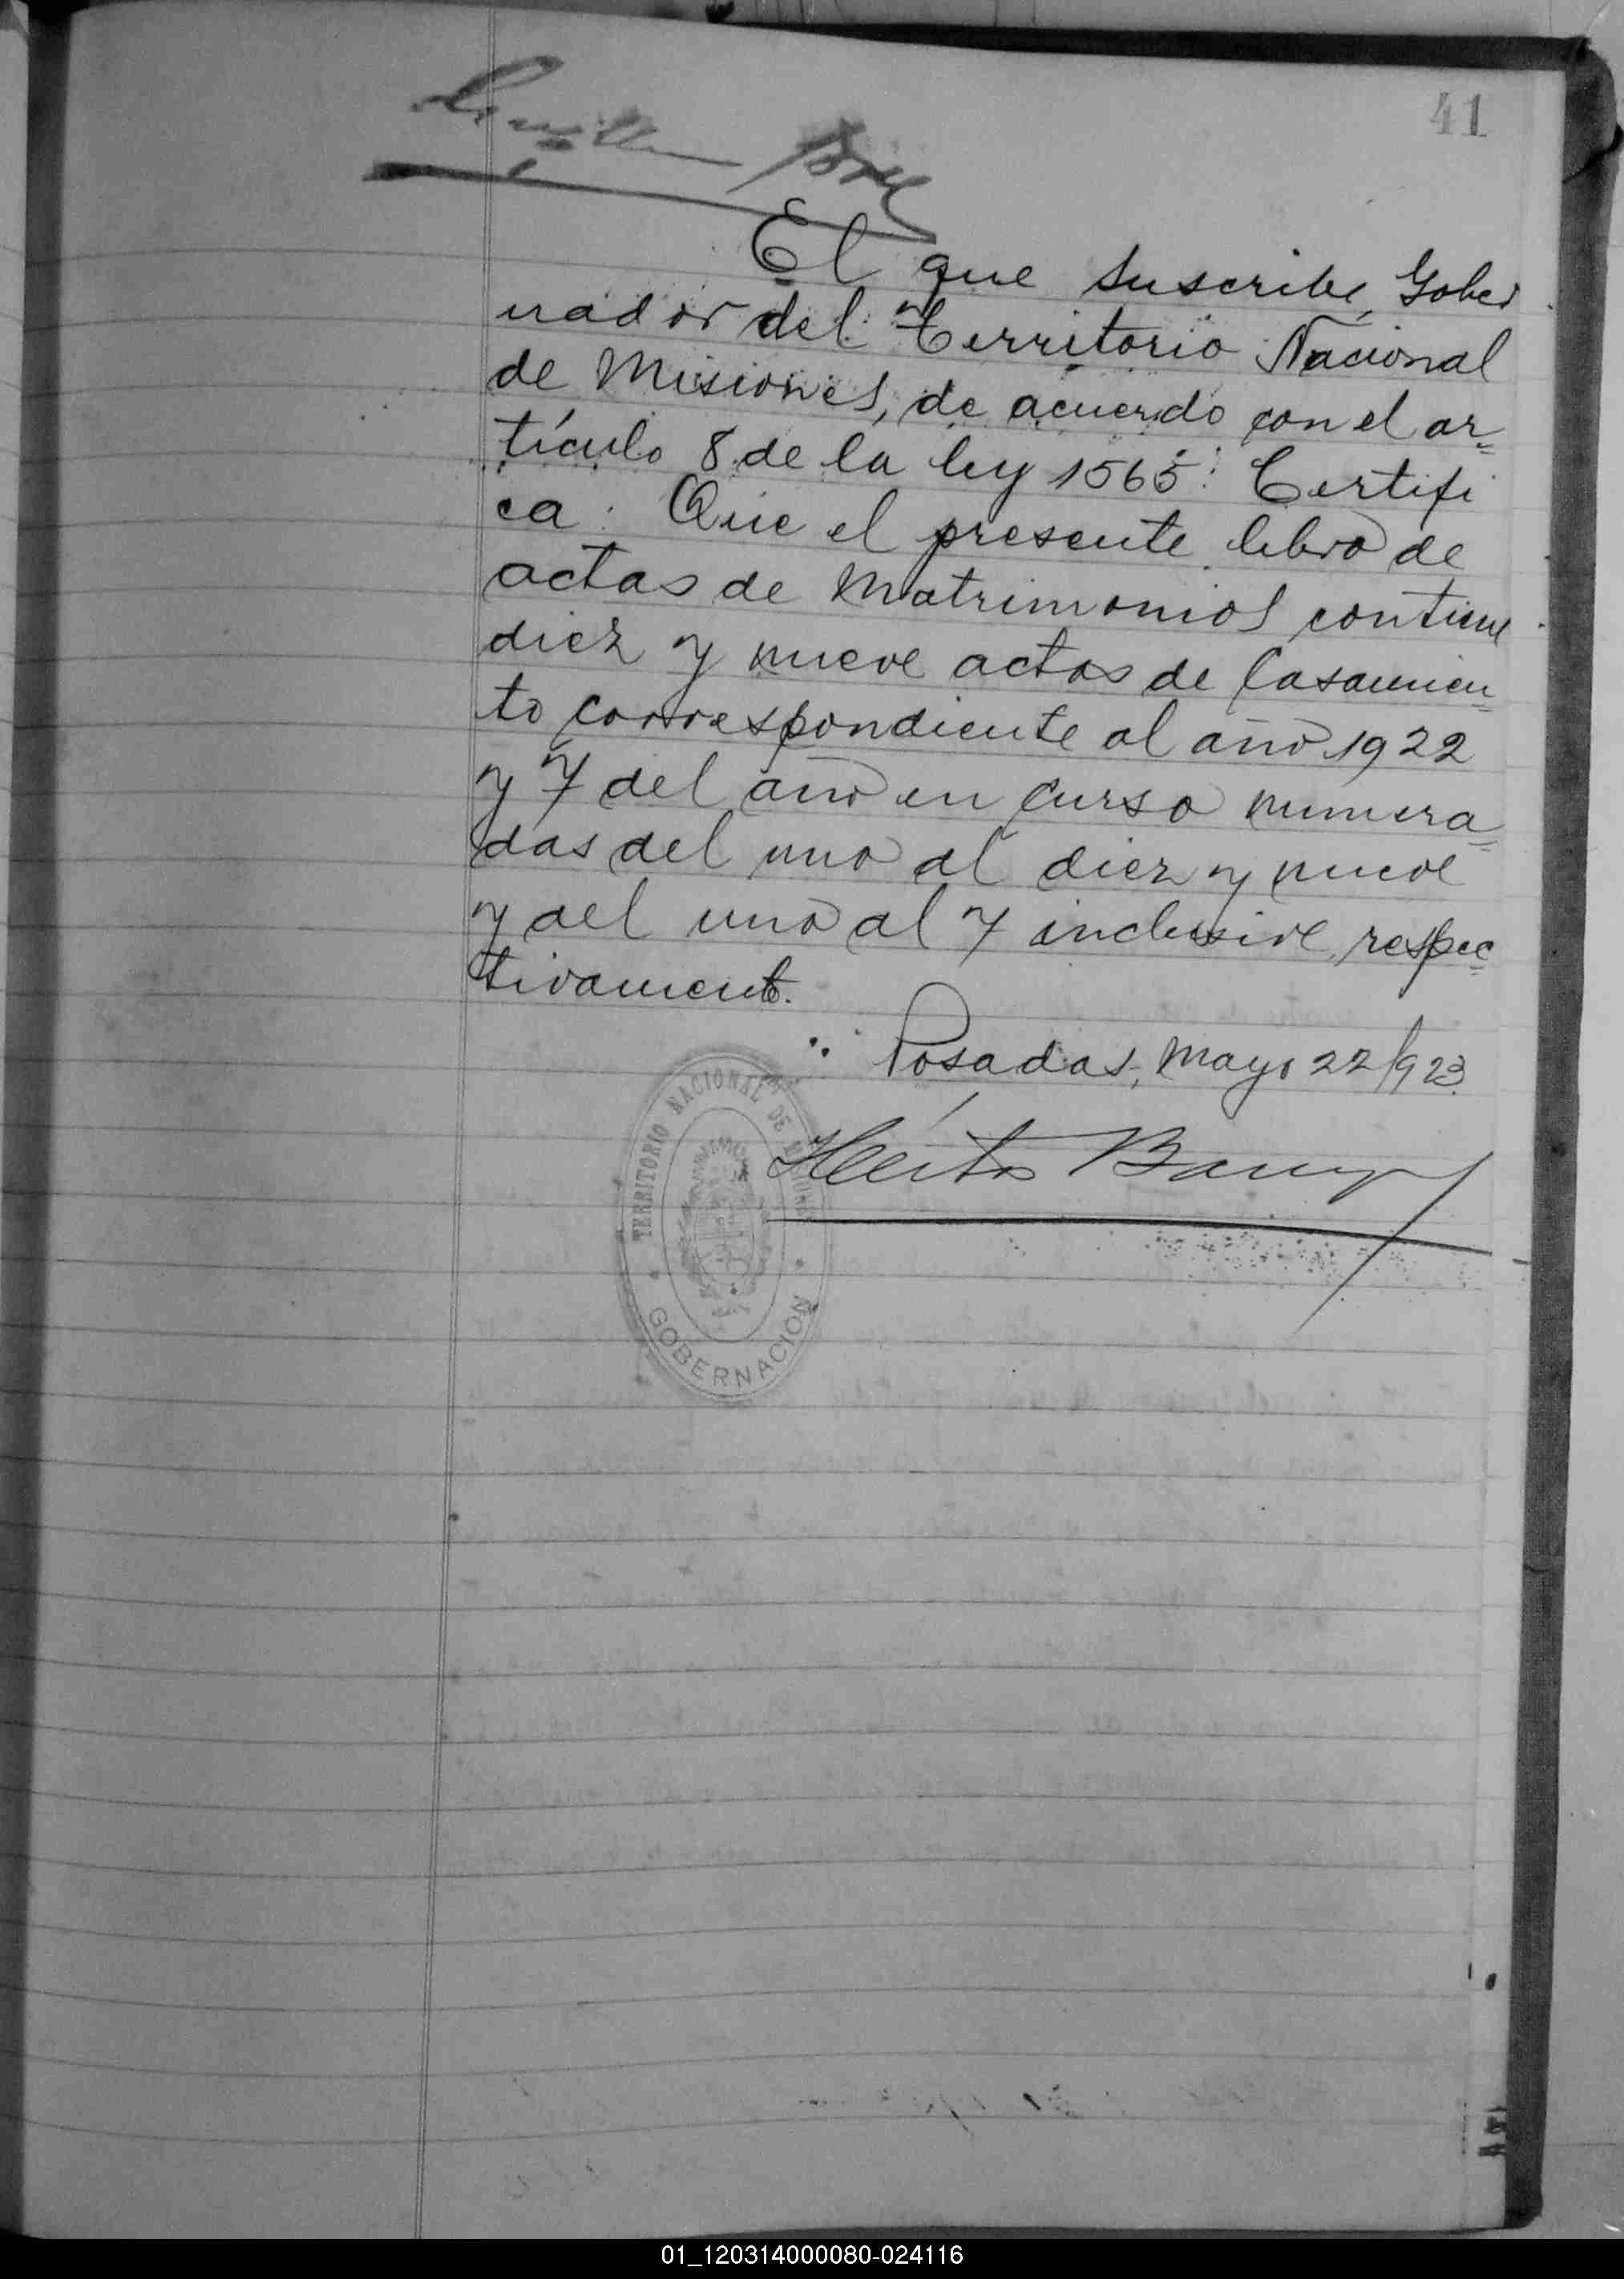 41
El que suscribe, Gober
nador del Territorio Nacional
de Misiones, de acuerdo con el ar=
tículo 8 de la ley 1565: Certifi
ca: Que el presente libro de
actas de Matrimonios contiene
diez y nueve actas de Casamien=
to correspondiente al año 1922
y 7 del año en curso numera=
das del uno al diez y nueve
y del uno al 7 inclusive, respec=
tivamente.
Posadas, Mayo 22/923.
TERRITORIO NACIONAL DE MISIONES
GOBERNACION
01_120314000080-024116